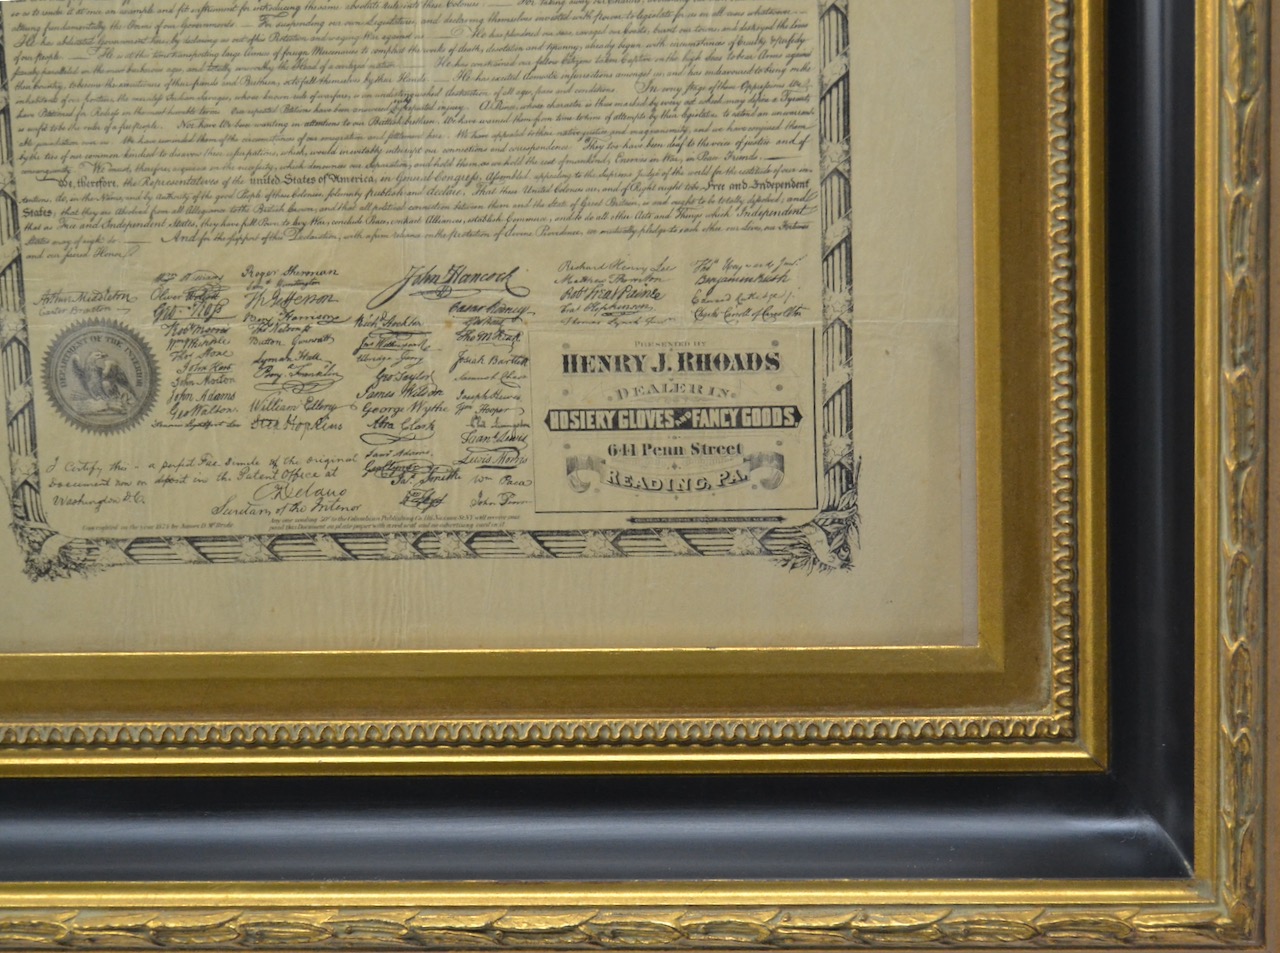 so as to render it at once an example and fit instrument for introducing the same absolute rule into these Colonies For taking away our Charters,
altering fundamentally the Forms of our Governments For suspending our own Legislatures, and declaring themselves invested with power to legislate for us in all cases whatsoever.
He has abdicated Government here, by declaring us out of his Protection and waging War against us He has plundered our seas, ravaged our Coasts, burnt our towns, and destroyed the lives
of our people. He is at this time transporting large Armies of foreign Mercenaries to compleat the works of death, desolation and tyranny, already begun with circumstances of Cruelty & perfidy
scarcely paralleled in the most barbarous ages, and totally unworthy the Head of a civilized nation. He has constrained our fellow Citizens taken Captive on the high Seas to bear Arms against
their Country, to become the executioners of their friends and Brethren, or to fall themselves by their Hands. He has excited domestic insurrections amongst us, and has endeavoured to bring on the
inhabitants of our frontiers, the merciless Indian Savages, whose known rule of warfare, is an undistinguished destruction of all ages, sexes and conditions. In every stage of these Oppressions We
have Petitioned for Redress in the most humble terms: Our repeated Petitions have been answered only by repeated injury. A Prince, whose character is thus marked by every act which may define a Tyrant,
is unfit to be the ruler of a free people. Nor have We been wanting in attentions to our British brethren. We have warned them from time to time of attempts by their legislature to extend an unwarrant-
able jurisdiction over us. We have reminded them of the circumstances of our emigration and settlement here. We have appealed to their native justice and magnanimity, and we have conjured them
by the ties of our common kindred to disavow these usurpations, which, would inevitably interrupt our connections and correspondence. They too have been deaf to the voice of justice and of
consanguinity. We must, therefore, acquiesce in the necessity, which denounces our Separation, and hold them, as we hold the rest of mankind, Enemies in War, in Peace Friends.
We, therefore, the Representatives of the united States of America, in General Congress, Assembled, appealing to the Supreme Judge of the world for the rectitude of our in-
tentions, do, in the Name, and by authority of the good People of these Colonies, solemnly publish and declare, That these United Colonies are, and of Right ought to be, Free and Independent
States; that they are Absolved from all Allegiance to the British Crown, and that all political connection between them and the State of Great Britain, is and ought to be totally dissolved; and
that as Free and Independent States, they have full Power to levy War, conclude Peace, contract Alliances, establish Commerce, and to do all other Acts and Things which Independent
States may of right do. And for the support of this Declaration, with a firm reliance on the protection of divine Providence, we mutually pledge to each other our Lives, our Fortunes
and our sacred Honor.
Arthur Middleton
Carter Braxton
Oliver Wolcott
Geo Ross
Robt Morris
Wm Whipple
John Hart
John Morton
John Adams
Geo Walton.
Roger Sherman
Saml Huntington
Th Jefferson
Benj Harrison
Ths Nelson jr
Button Gwinnett
Lyman Hall
Benj Franklin
William Ellery
Step Hopkins
John Hancock
Richd Stockton
Jno Witherspoon
Elbridge Gerry
Geo Taylor
James Wilson
George Wythe
Abra Clark
Saml Adams
Geo Clymer
Jas. Smith
Caesar Rodney
Geo Read
Tho M:Kean
Josiah Bartlett
Samuel Chase
Joseph Hewes
Wm Hooper
Phil Livingston
Fran Lewis
Lewis Morris
Wm Paca
John Penn
Richard Henry Lee
Matthew Thornton
Robt Treat Paine
Thomas Lynch Junr
Thos Heyward Junr
Benjamin Rush
Edward Rutledge
DEPARTMENT OF THE INTERIOR
I Certify this a perfect Fac Simile of the original
Document now on deposit in the Patent Office at
Washington D.C.
C Delano
Secretary of the Interior
PRESENTED BY
HENRY J. RHOADS
DEALER IN
HOSIERY GLOVES AND FANCY GOODS.
641 Penn Street
READING, PA.